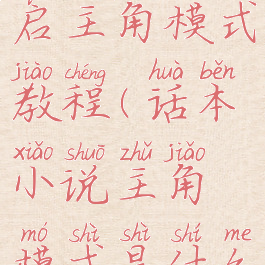 启主角模式
jiào chéng huà běn
教程(话本
xiǎo shuō zhǔ jiǎo
小说主角
mó shì shì shí me
模式是什么